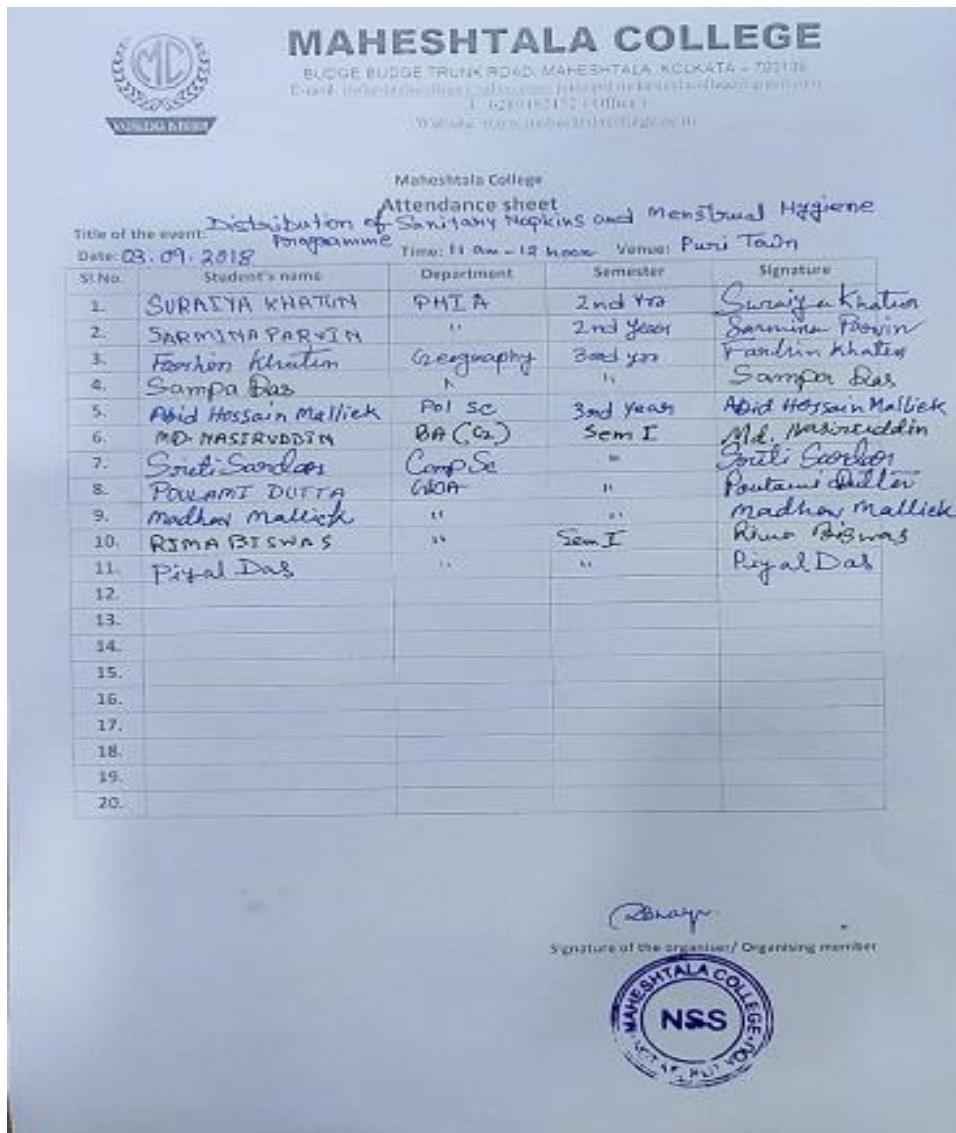 MC
MAHESHTALA COLLEGE
BUDGE BUDGE TRUNK ROAD, MAHESHTALA, KOLKATA –
Maheshtala College
Attendance sheet
Title of the event: Distribution of Sanitary Napkins and Menstrual Hygiene Programme
Date: 03.09.2018 Time: 11 am – 12 noon Venue: Puri Town
Sl.No. Student's name Department Semester Signature
1. SURAIYA KHATUN PHIA 2nd Suraiya Khatun
2. SARMINA PARVIN " 2nd year Sarmina Parvin
3. Khatun Geography Khatun
4. Sampa Das " " Sampa Das
5. Abid Hossain Mallick Pol Sc 3rd Year Abid Hossain Mallick
6. MD. NASIRUDDIN BA (G) Sem I Md. Nasiruddin
7. Sardar Comp Sc " Sardar
8. POULAMI DUTTA " Poulami Dutta
9. Madhav Mallick " " Madhav Mallick
10. RIMA BISWAS " Sem I Rima Biswas
11. Piyal Das " " Piyal Das
12.
13.
14.
15.
16.
17.
18.
19.
20.
Signature of the organiser/ Organising member
MAHESHTALA COLLEGE
NSS